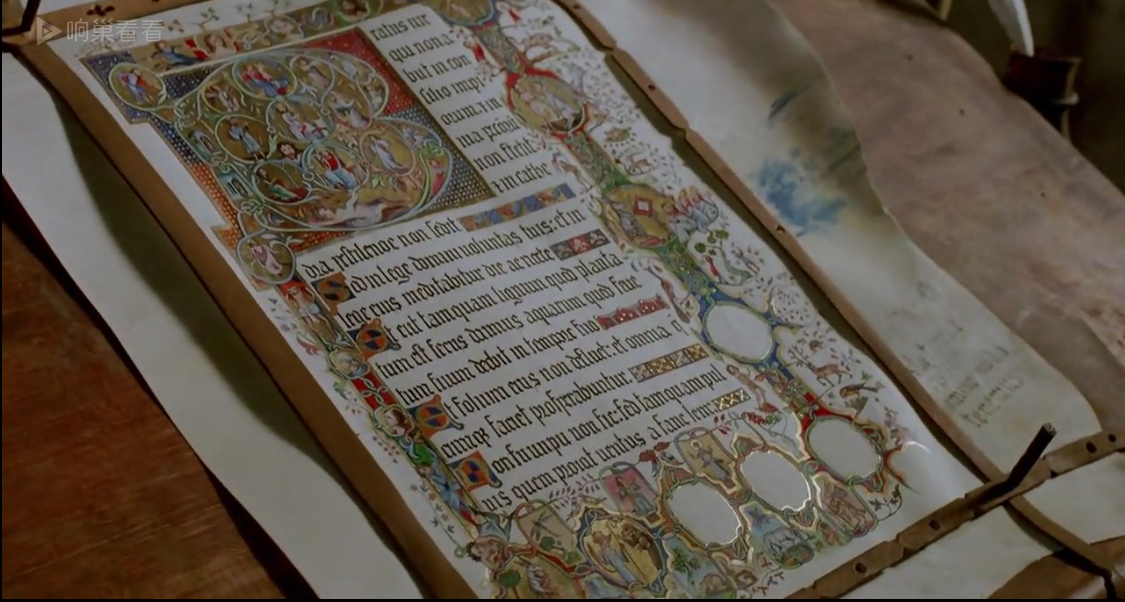 响巢看看
ratus uir
qui non a
but in con
silio impi
orum : in
ma pcoui
non stetit :
t in cathe
dra pestilencie non sedit
Sed in lege domini uoluntas eius : et in
lege eius meditabitur die ac nocte
Et erit tamquam lignum quod planta
tum est secus decursus aquarum quod fruc
tum suum dabit in tempore suo
Et folium eius non defluet : et omnia q
cumqz faciet prosperabuntur
Non sic impii non sic : sed tamquam pul
uis quem proicit uentus a facie terre